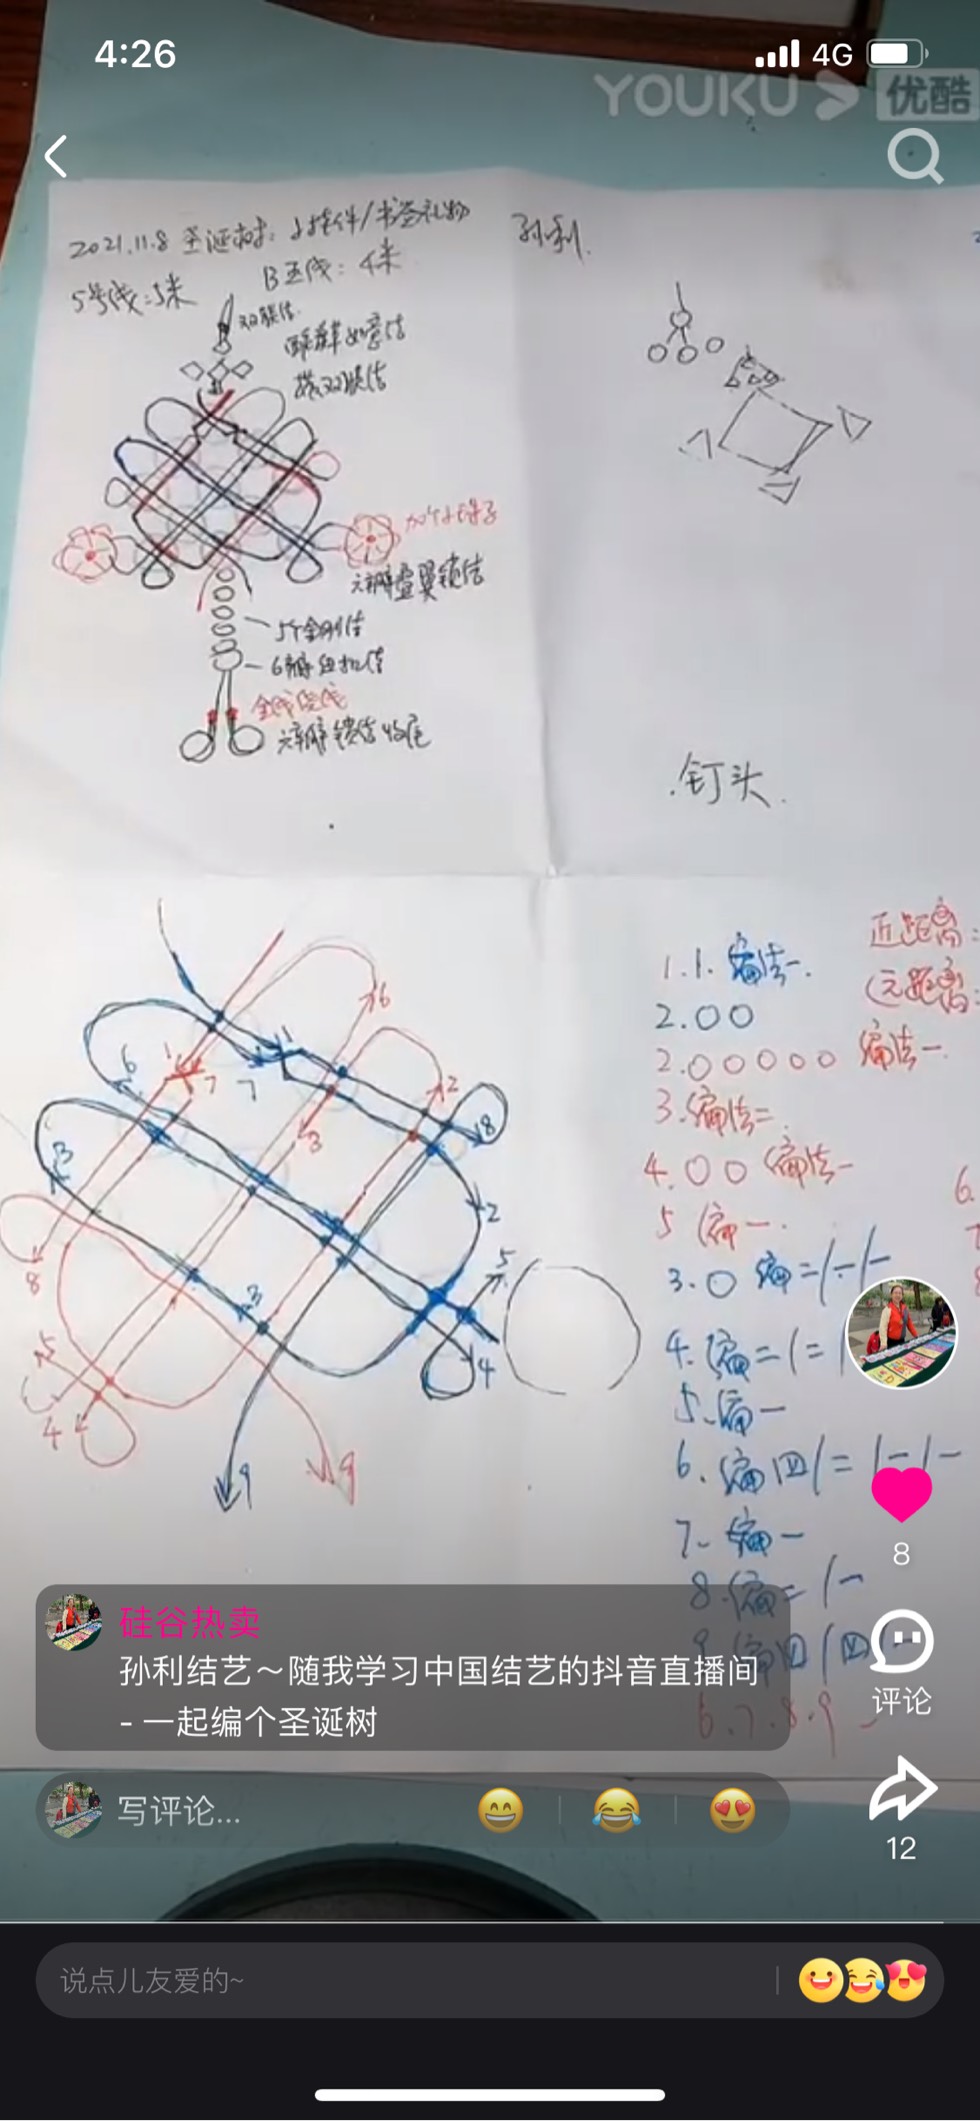 4:26
4G
YOUKU 优酷
2021.11.8 圣诞树: 小挂件/书签礼物
孙利.
5号线:5米
B玉线: 4米
双联结.
如意结
双联结
六瓣叠翼锁结
5个金刚结
6瓣纽扣结
金线绕线
六瓣锁结收尾
.钉头.
6
1
1
6
7
7
2
8
3
3
2
5
8
3
5
4
4
9
9
1.1. 编法一.
近距离:
2.00
(元距离:
2.00000 编法一.
3.编法二
4.00 编法一
6.
5 编一.
3.0 编二/一/一
4.编二/二/
5.编一
6.编四/二/一/一
7.编一
8.编二/一
9.编四/四/
6.7.8.9
8
硅谷热卖
孙利结艺～随我学习中国结艺的抖音直播间
- 一起编个圣诞树
评论
写评论...
12
说点儿友爱的~